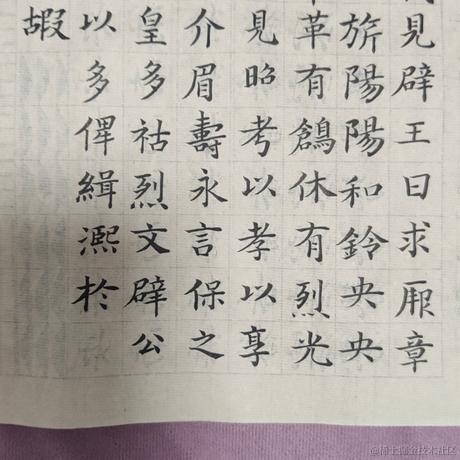 見辟王曰求厥章
旂陽陽和鈴央央
革有鶬休有烈光
見昭考以孝以享
介眉壽永言保之
皇多祜烈文辟公
以多俾緝熙於
嘏
@稀土掘金技术社区